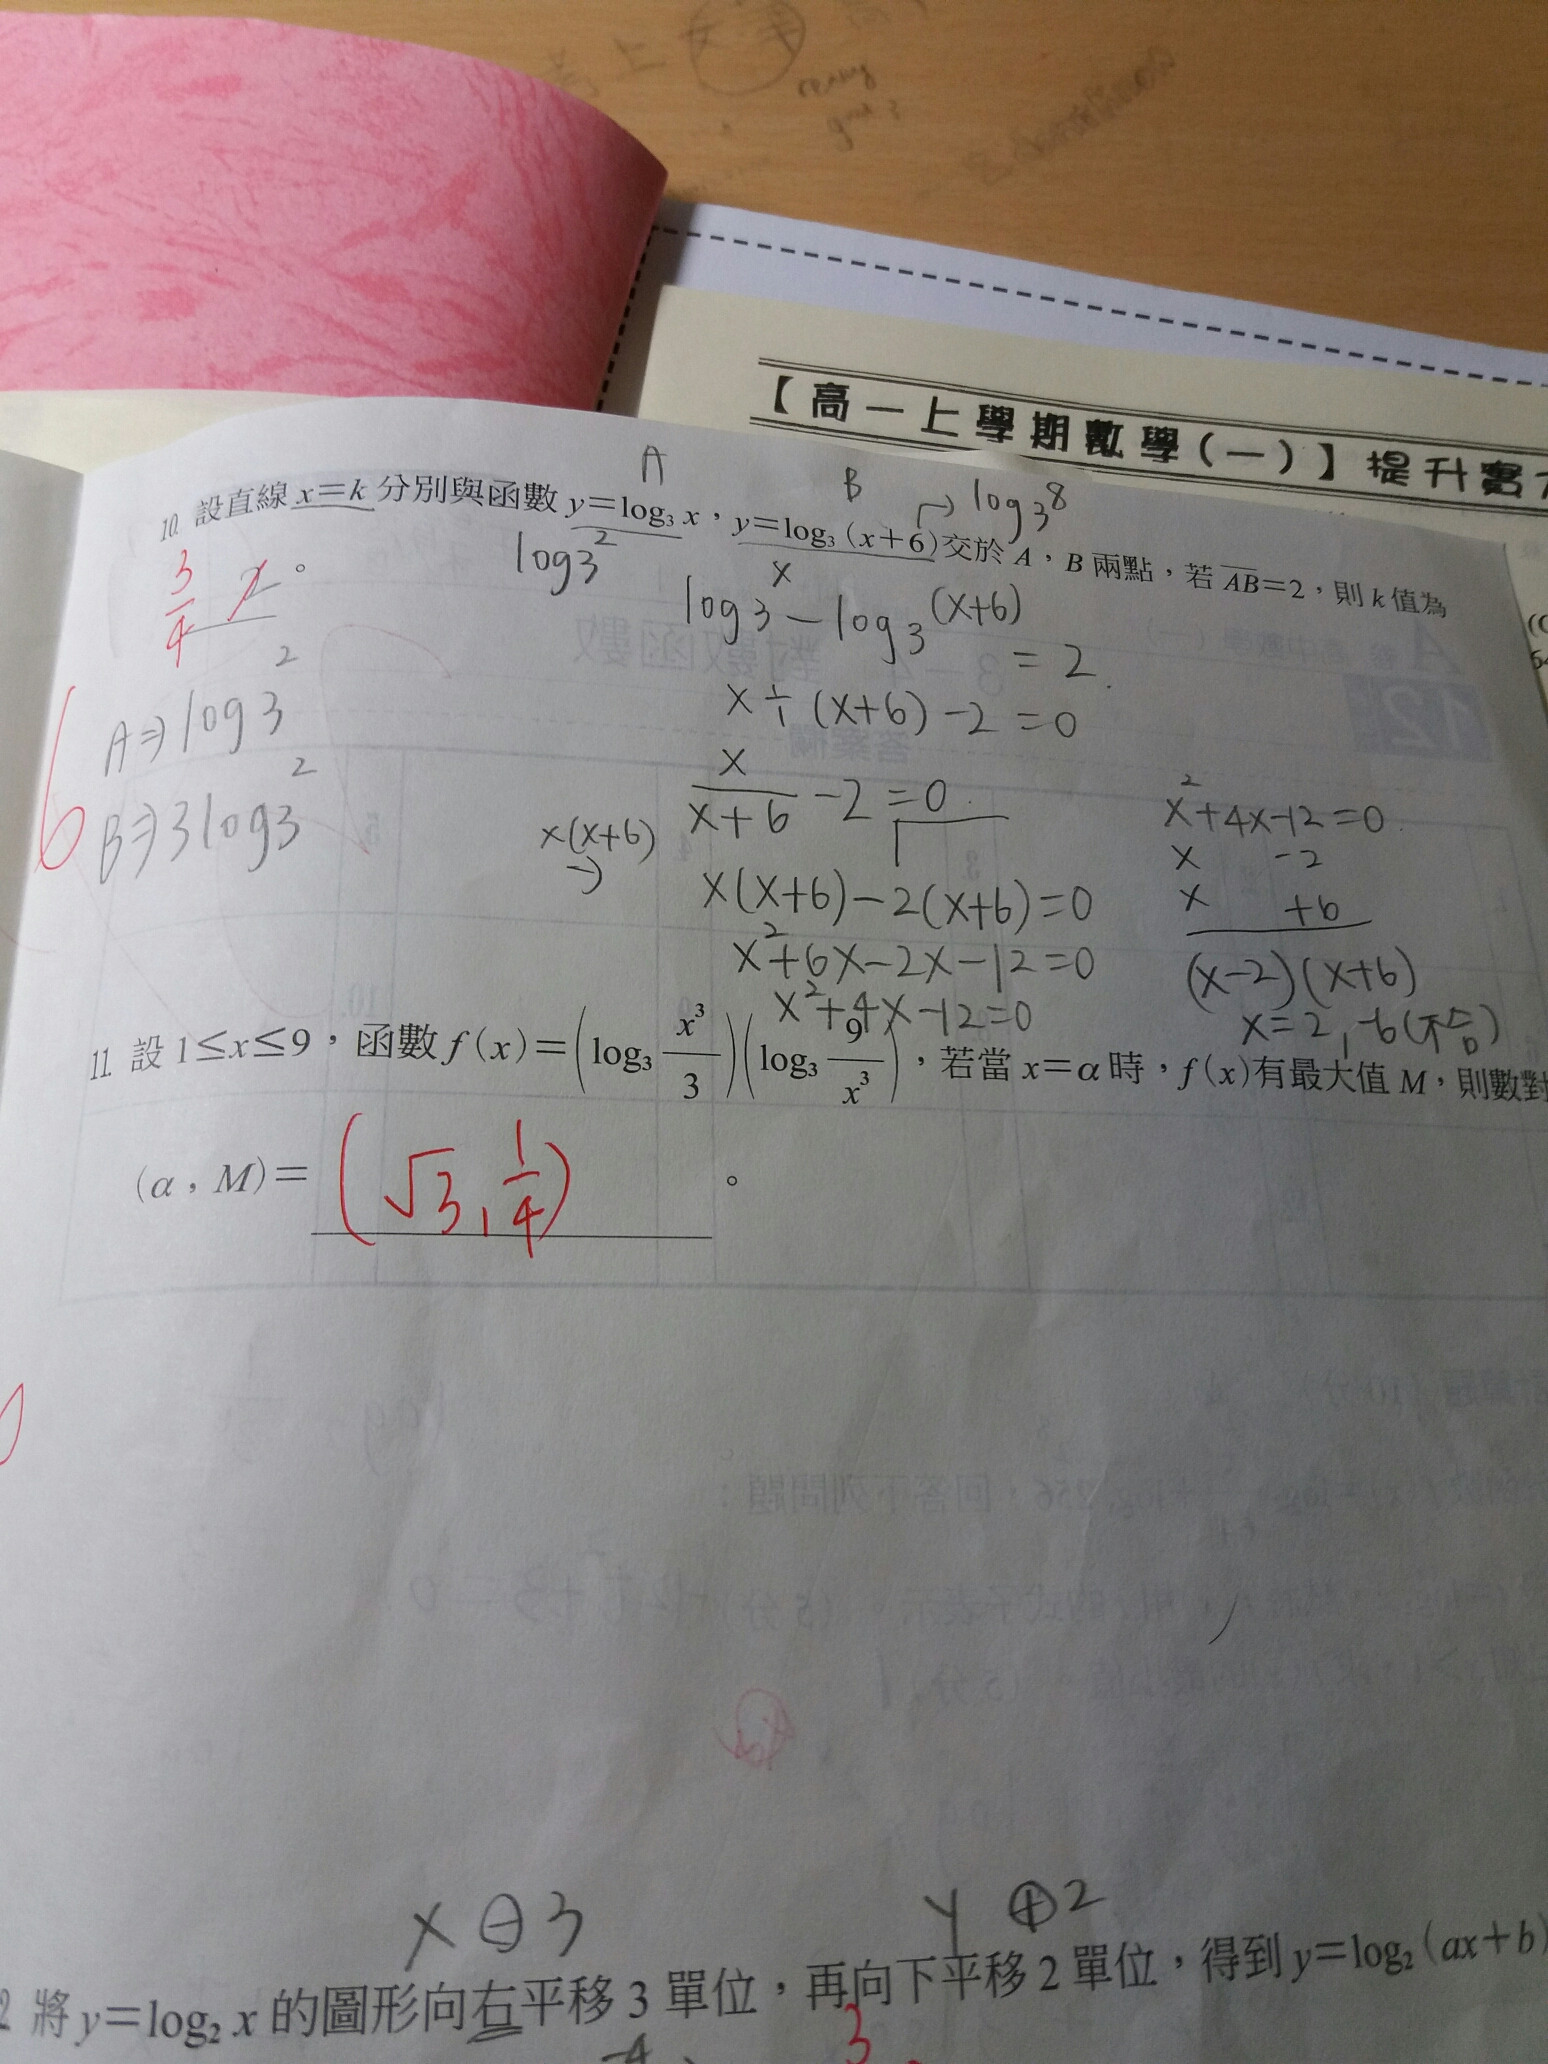 【高一上學期數學(一)】提升實
A
B
log₃8
10. 設直線 x=k 分別與函數 y=log₃ x，y=log₃ (x+6) 交於 A，B 兩點，若 AB=2，則 k 值為
3/4 。
log3²
log3ˣ - log3⁽ˣ⁺⁶⁾
= 2
A⇒log3²
B⇒3log3²
6
x÷(x+6)-2=0
x/(x+6) -2=0
x(x+6)
→
x(x+6)-2(x+6)=0
x²+6x-2x-12=0
x²+4x-12=0
x²+4x-12=0
x -2
x +6
(x-2)(x+6)
x=2, -6(不合)
11. 設 1≤x≤9，函數 f(x)=(log₃ x³/3)(log₃ 9/x³)，若當 x=α 時，f(x)有最大值 M，則數對
(α，M)= (√3, 1/4) 。
X⊖3
y ⊕2
2 將 y=log₂ x 的圖形向右平移 3 單位，再向下平移 2 單位，得到 y=log₂ (ax+b)
3